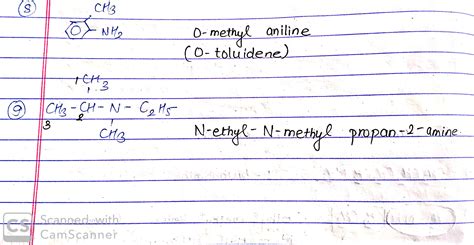 (8) CH3
NH2
O-methyl aniline
(O-toluidene)
1 CH3
(9) CH3 - CH - N - C2H5
3 2
CH3
N-ethyl-N-methyl propan-2-amine
CS Scanned with
CamScanner